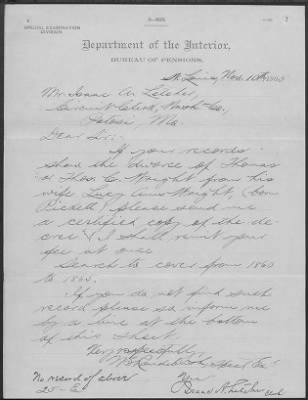 SPECIAL EXAMINATION
DIVISION.
Department of the Interior,
BUREAU OF PENSIONS,
St. Louis, Nov. 10th
Mr Isaac
Circuit Clerk, Wash. Co.,
Potosi, Mo
Dear Sir:
If your records
show the divorce of Thomas
or Theo. C. Wright from his
wife, Lucy Ann Wright, (born
Pickett) please send me
a certified copy of the de-
cree & I shall remit your
fee at once.
Search to cover from 1860
to 1865.
If you do not find such
record please so inform me
by a line at the bottom
of this sheet.
Very respectfully,
No record of above